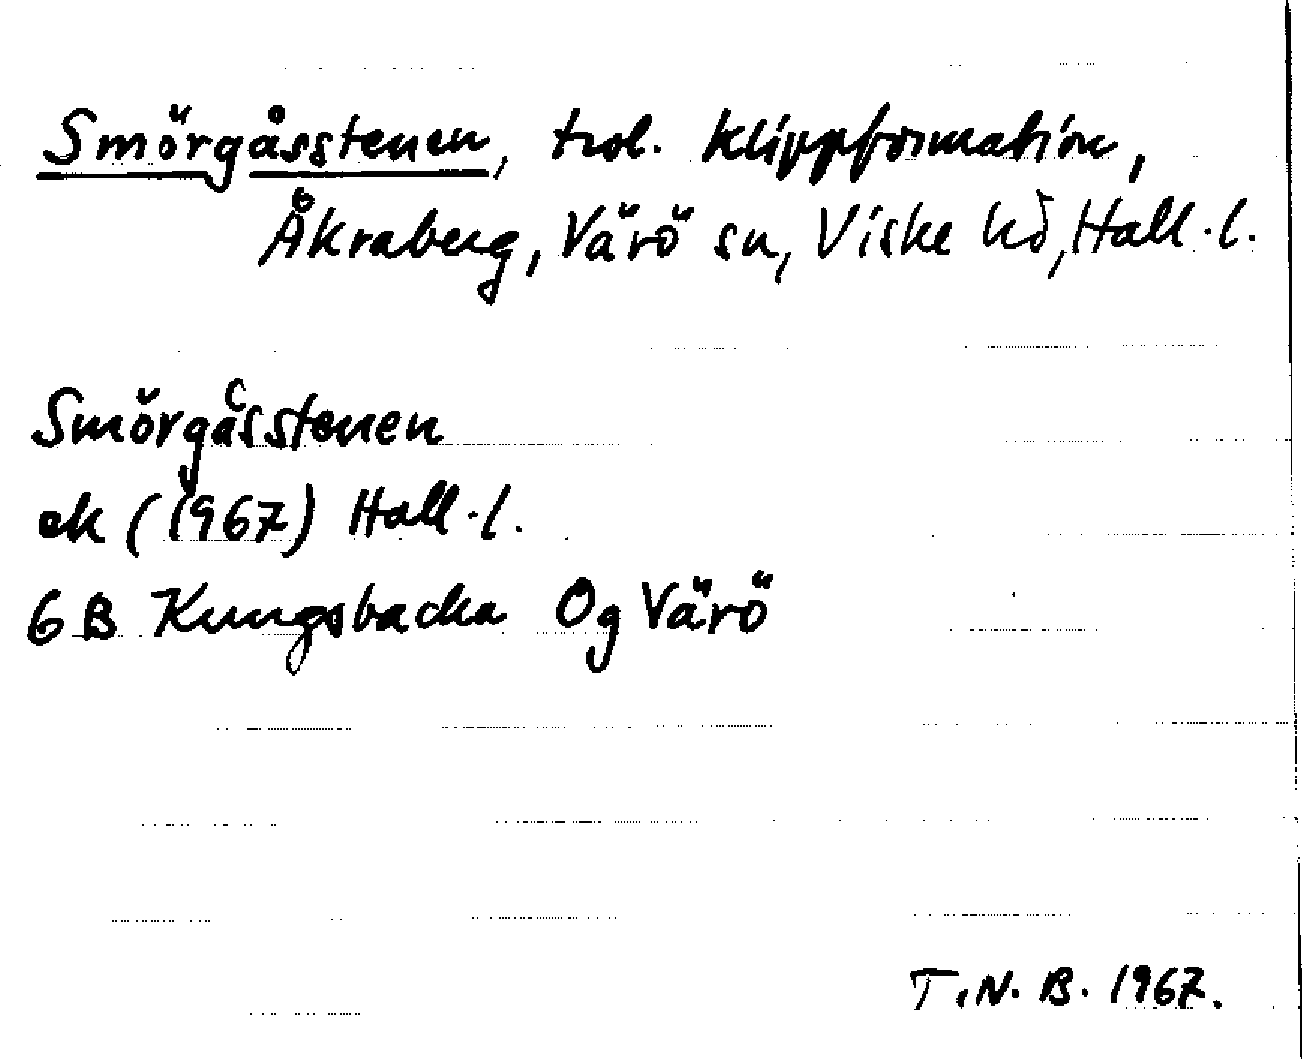 Smörgåsstenen, trol. klippformation,
Åkraberg, Värö sn, Viske hd, Hall.l.
Smörgåsstenen
ek (1967) Hall.l.
6B Kungsbacka 0g Värö
T.N.B. 1967.